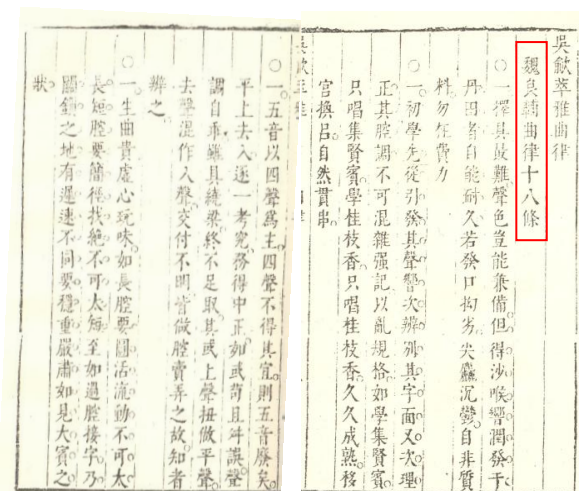 吳歈萃雅曲律
魏良輔曲律十八條
○一擇具最難聲色豈能兼備但得沙喉響潤發于
丹田者自能耐久若發口拗劣尖麤沉鬱自非質
料勿枉費力
○一初學先從引發其聲響次辨別其字面又次理
正其腔調不可混雜强記以亂規格如學集賢賓
只唱集賢賓學桂枝香只唱桂枝香久久成熟移
宮換呂自然貫串
○一五音以四聲爲主四聲不得其宜則五音廢矣
平上去入逐一考究務得中正如或苟且舛誤聲
調自乖雖具繞梁終不足取其或上聲扭做平聲
去聲混作入聲交付不明皆做腔賣弄之故知者
辨之
○一生曲貴虛心玩味如長腔要圓活流動不可太
長短腔要簡徑找絕不可太短至如過腔接字乃
關鎖之地有遲速不同要穩重嚴肅如見大賓之
狀